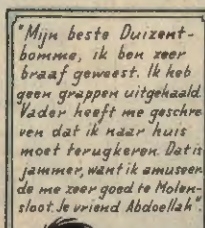 "Mijn beste Duizent-
bomme, ik ben zeer
braaf geweest. Ik heb
geen grappen uitgehaald.
Vader heeft me geschre
ven dat ik naar huis
moet terugkeren. Dat is
jammer, want ik amuseer
de me zeer goed te Molen-
sloot. Je vriend Abdoellah".